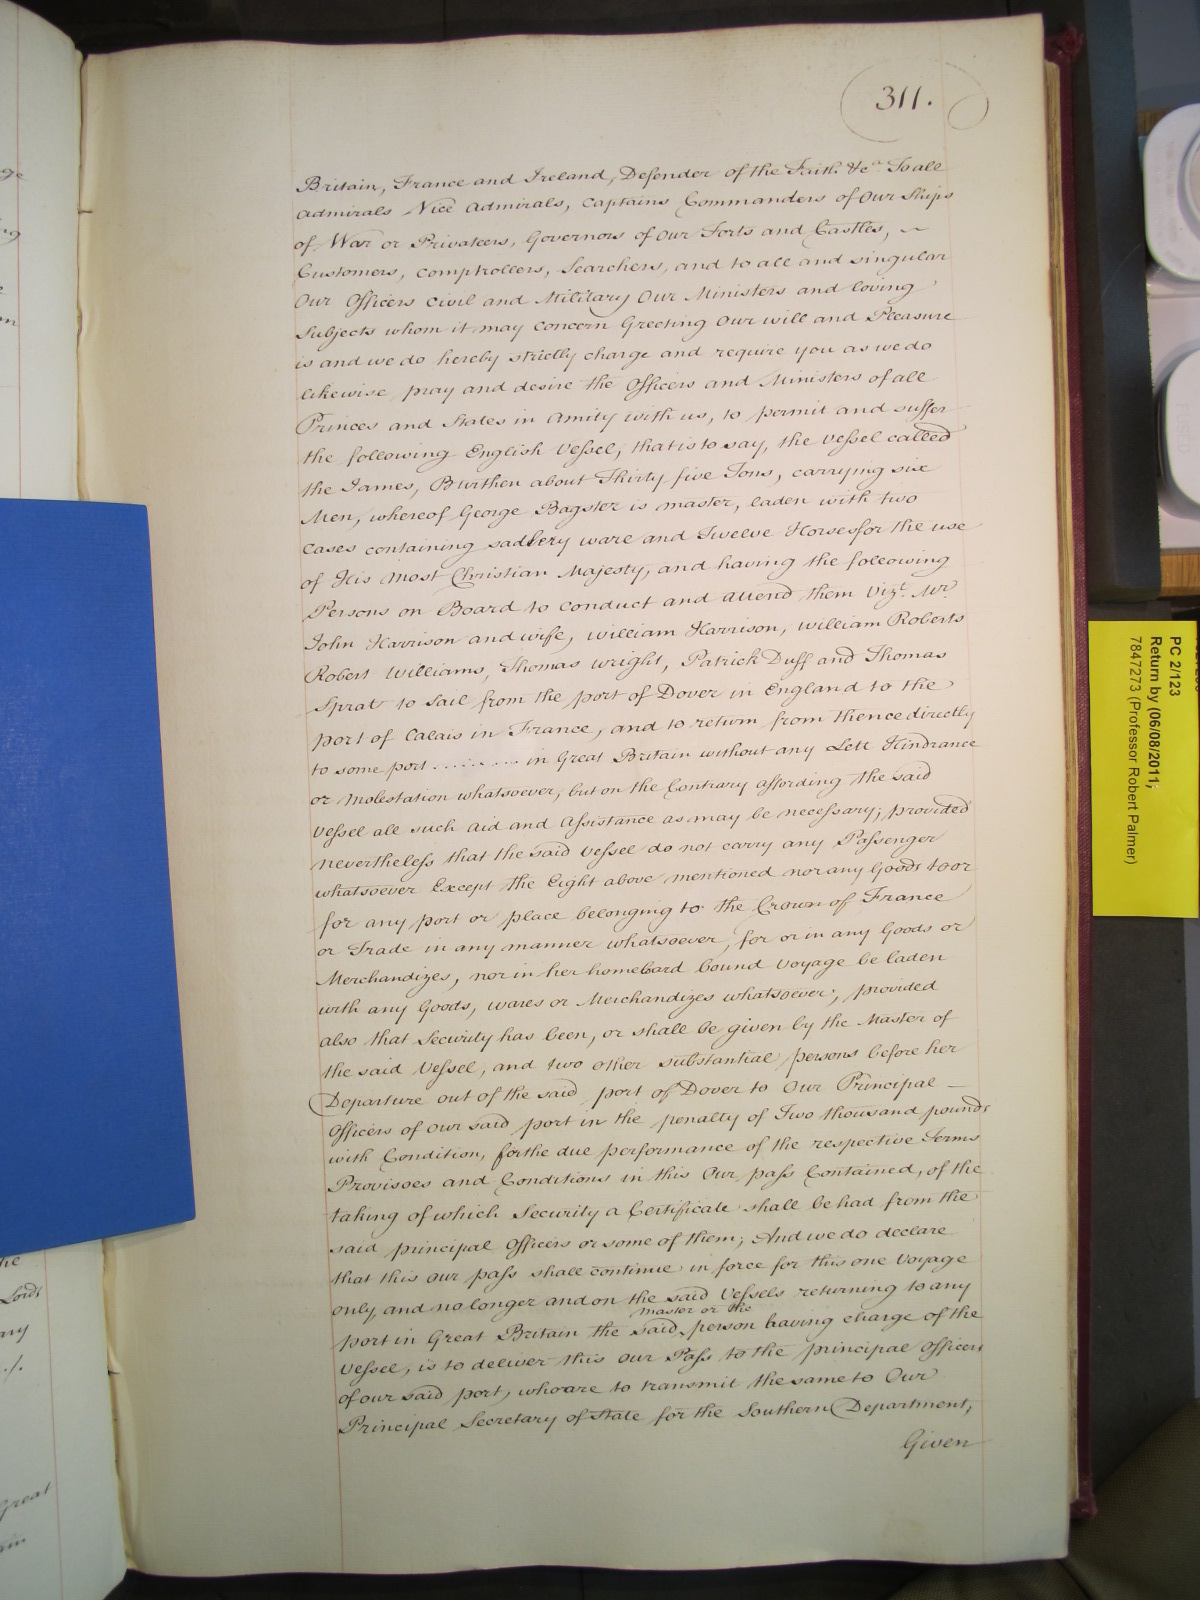 311.
Britain, France and Ireland, Defender of the Faith &c.a To all
Admirals Vice Admirals, Captains Commanders of Our Ships
of War or Privateers, Governors of our Forts and Castles, ~
Customers, Comptrollers, Searchers, and to all and singular
Our Officers Civil and Military Our Ministers and loving
Subjects whom it may concern Greeting Our will and Pleasure
is and we do hereby strictly charge and require you as we do
likewise pray and desire the Officers and Ministers of all
Princes and States in Amity with us, to permit and suffer
the following English Vessel, that is to say, the Vessel called
the James, Burthen about Thirty five Tons, carrying six
Men, whereof George Bagster is master, laden with two
Cases containing sadlery ware and Twelve Horses for the use
of His most Christian Majesty, and having the following
Persons on Board to conduct and attend them Vizt. Mr.
John Harrison and wife, William Harrison, William Roberts
Robert Williams, Thomas Wright, Patrick Duff and Thomas
Sprat to sail from the port of Dover in England to the
port of Calais in France, and to return from thence directly
to some port .......... in Great Britain without any Lett Hindrance
or Molestation whatsoever, but on the Contrary affording the said
Vessel all such Aid and Assistance as may be necessary; provided
nevertheless that the said Vessel do not carry any Passenger
whatsoever Except the Eight above mentioned nor any Goods to or
for any port or place belonging to the Crown of France
or Trade in any manner whatsoever, for or in any Goods or
Merchandizes, nor in her homeward bound Voyage be laden
with any Goods, wares or Merchandizes whatsoever; provided
also that Security has been, or shall be given by the Master of
the said Vessel, and two other substantial persons before her
Departure out of the said port of Dover to Our Principal —
Officers of our said port in the penalty of Two thousand pounds
with Condition, for the due performance of the respective Terms
Provisoes and Conditions in this Our pass Contained, of the
taking of which Security a Certificate shall be had from the
said principal Officers or some of them; And we do declare
that this our pass shall continue in force for this one Voyage
only, and no longer and on the said Vessels returning to any
master or the
port in Great Britain the said person having charge of the
Vessel, is to deliver this our Pass to the principal Officers
of our said port, who are to transmit the same to Our
Principal Secretary of State for the Southern Department,
Given
PC 2/123
Return by (06/08/2011;
7847273 (Professor Robert Palmer)